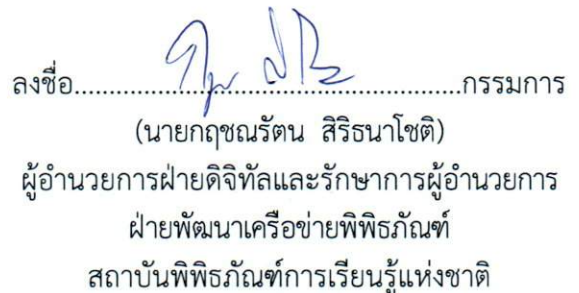 ลงชื่อ................................................กรรมการ
(นายกฤชณรัตน สิริธนาโชติ)
ผู้อำนวยการฝ่ายดิจิทัลและรักษาการผู้อำนวยการ
ฝ่ายพัฒนาเครือข่ายพิพิธภัณฑ์
สถาบันพิพิธภัณฑ์การเรียนรู้แห่งชาติ